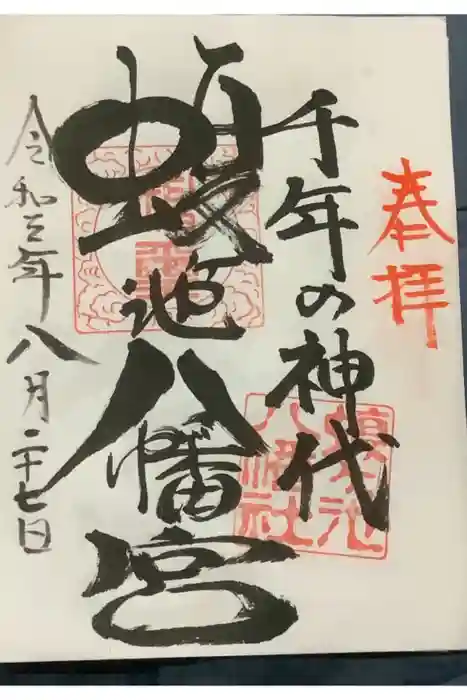 奉拝
千年の神代
蝮池八幡宮
令和三年八月二十七日
蝮ヶ池
八幡社